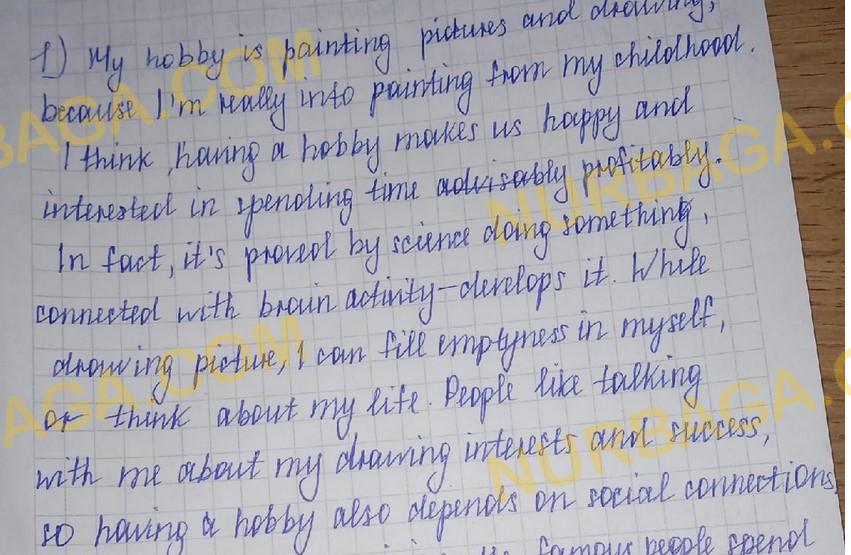 1) My hobby is painting pictures and drawing,
because I'm really into painting from my childhood.
I think, having a hobby makes us happy and
interested in spending time advisably profitably.
In fact, it's proved by science doing something,
connected with brain activity-develops it. While
drawing picture, I can fill emptyness in myself,
or think about my life. People like talking
with me about my drawing interests and success,
so having a hobby also depends on social connections,
famous people spend
NURBAGA.COM
BAGA.COM
NURBAGA.C
AGA.COM
NURBAGA.C